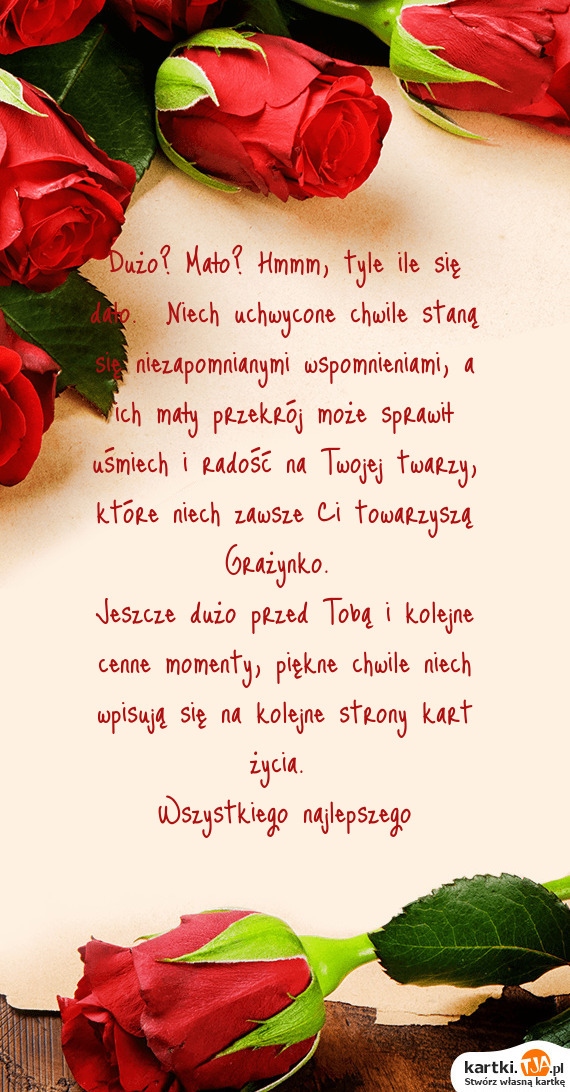 Dużo? Mało? Hmmm, tyle ile się
dało. Niech uchwycone chwile staną
się niezapomnianymi wspomnieniami, a
ich mały przekrój może sprawił
uśmiech i radość na Twojej twarzy,
które niech zawsze Ci towarzyszą
Grażynko.
Jeszcze dużo przed Tobą i kolejne
cenne momenty, piękne chwile niech
wpisują się na kolejne strony kart
życia.
Wszystkiego najlepszego
kartki.TJA.pl
Stwórz własną kartkę